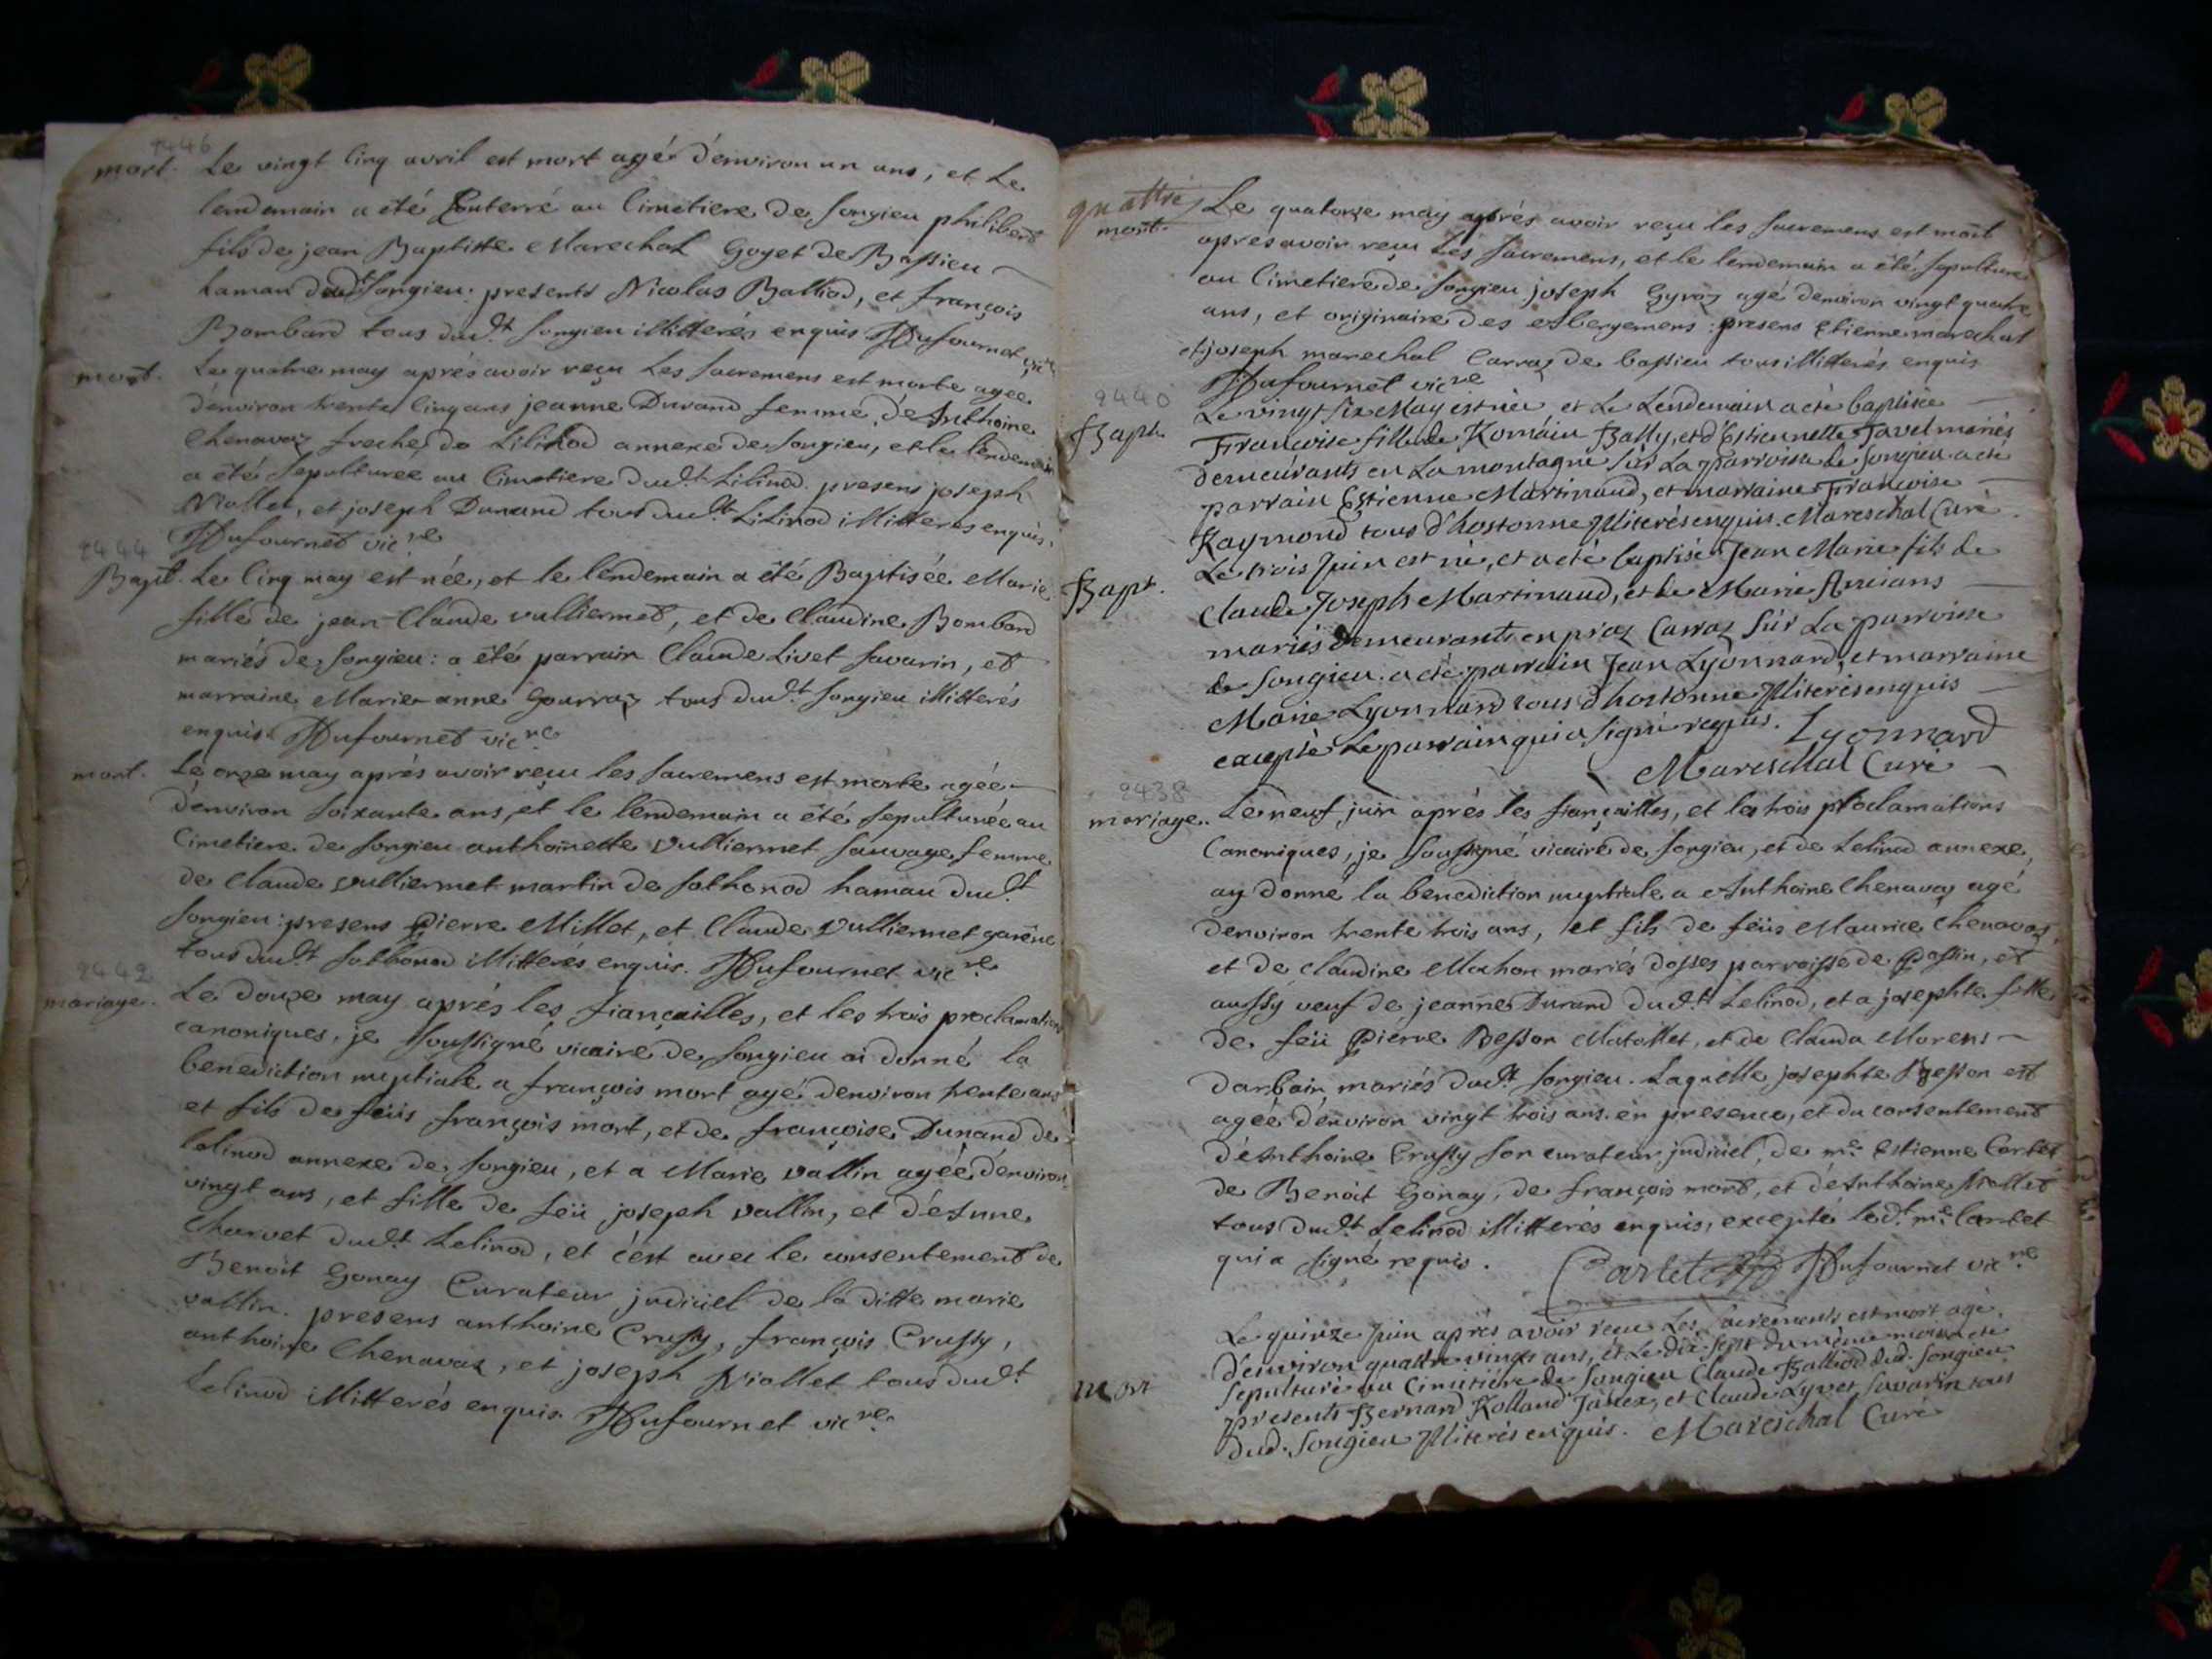 9446
mort. Le vingt Cinq avril est mort agé d'environ un ans, et Le
lendemain a été enterré au Cimetiere de songieu philibert
fils de jean Baptitte Marechal Goyet de Bassieu
hamau dudt songieu: presents Nicolas Balliod, et françois
Bombard tous dudt songieu illitterés enquis Dufournet vicre
mort. Le quatre may aprés avoir reçu les sacremens est morte agee
d'environ trente Cinq ans jeanne Durand femme d'Anthoine
Chenavaz freche de Lilinod annexe de songieu, et le lendemain
a été sepulturee au Cimetiere dudt Lilinod. presens joseph
Niollet, et joseph Dunand tous dudt Lilinod illitteres enquis.
Dufournet vicre
9444
Bapt. Le Cinq may est née, et le lendemain a été Baptisée Marie
fille de jean Claude vulliermet, et de Claudine Bombard
mariés de songieu: a été parrain Claude Livet savarin, et
marraine Marie anne Gourraz tous dudt songieu illitterés
enquis Dufournet vicre
mort. Le onze may aprés avoir reçu les sacremens est morte agée
d'environ soixante ans, et le lendemain a été sepulturée au
Cimetiere de songieu anthoinette vulliermet sauvage femme
de Claude vulliermet martin de sothonod hamau dudt
songieu: presens Pierre Millet, et Claude vulliermet
tous dudt sothonod illitterés enquis. Dufournet vicre
9442
mariage. Le douze may aprés les fiançailles, et les trois proclamations
canoniques, je soussigné vicaire de songieu ai donné la
benediction nuptiale a françois mort agé d'environ trente ans
et fils de feüs françois mort, et de françoise Dunand de
lelinod annexe de songieu, et a Marie vallin agée d'environ
vingt ans, et fille de feü joseph vallin, et d'Anne
Charvet dudt Lelinod, et c'est avec le consentement de
Benoit Gonay Curateur judiciel de la ditte marie
vallin. presens anthoine Crussy, françois Crussy,
anthoine Chenavaz, et joseph Niollet tous dudt
Lelinod illitterés enquis. Dufournet vicre
quattre
mort. Le quatorze may aprés avoir reçu les sacremens est mort
apres avoir reçu les sacremens, et le lendemain a été sepulturé
au Cimetiere de songieu joseph Gyroz agé d'environ vingt quatre
ans, et originaire des Abergemens: presens Etienne marechal
et joseph marechal Carraz de bassieu tous illitterés enquis
Dufournet vicre
9440
Bapt. Le vingt six May est née et Le Lendemain a été baptisée
Françoise fille de Romain Bally, et d'Estiennette Tavel mariés
demeurants en La montagne sur La parroisse de songieu a été
parrain Estienne Martinaud, et marraine Françoise
Raymond tous d'hostonne Illiterés enquis. Mareschal Curé
Bapt. Le trois Juin est né, et a été baptisé Jean Marie fils de
Claude Joseph Martinaud, et de Marie Ancians
mariés demeurants en praz Carraz sur La parroisse
de Songieu. a été parrain Jean Lyonnard, et marraine
Marie Lyonnard tous d'hostonne Illiterés enquis
excepté Le parrain qui a signé requis. Lyonnard
Mareschal Curé
9438
mariage. Le neuf juin aprés les fiançailles, et les trois proclamations
Canoniques, je soussigné vicaire de songieu, et de Lelinod annexe,
ay donné la benediction nuptiale a Anthoine Chenavaz agé
d'environ trente trois ans, et fils de feüs Maurice Chenavaz,
et de Claudine Mahon mariés dosses parroisse de Passin, et
aussy veuf de jeanne Durand dudt Lelinod, et a josephte fille
de feü Pierre Besson Matollet, et de Clauda Morens
darboin mariés dudt songieu. Laquelle josephte Besson est
agée d'environ vingt trois ans. en presence, et du consentement
d'Anthoine Crussy son curateur judiciel, de me Estienne Cartet
de Benoit Gonay, de françois mort, et d'Anthoine Niollet
tous dudt Lelinod illitterés enquis, excepté ledt me Cartet
qui a signé requis. Cartet Dufournet vicre
mort Le quinze Juin aprés avoir reçu Les sacrements est mort agé
d'environ quattre vingts ans, et Le dix sept du même mois a été
sepulturé au Cimitiére de Songieu Claude Balliod dud. songieu
presents Bernard Rolland Janex, et Claude Lyvet Savarin tous
dud. songieu Illiterés enquis. Mareschal Curé